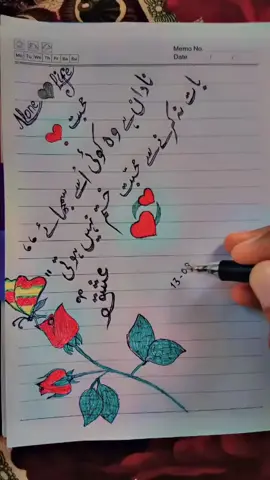 Memo No.
Mo Tu We Th Fr Sa Su
Date / /
Life
محبت
نادان ہے وہ کوئی اسے سمجھائے “
بات نہ کرنے سے محبت ختم نہیں ہوتی "
عشق
13-08